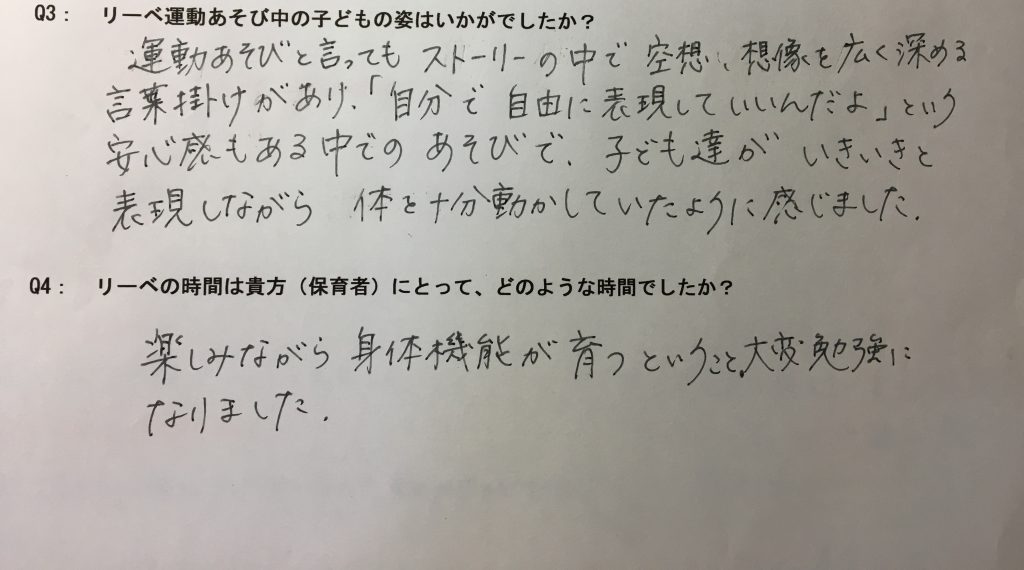 Q3： リーベ運動あそび中の子どもの姿はいかがでしたか？
運動あそびと言っても ストーリーの中で 空想、想像を広く深める
言葉掛けがあり、「自分で 自由に表現していいんだよ」という
安心感もある中での あそびで、子ども達が いきいきと
表現しながら 体を十分動かしていたように感じました。
Q4： リーベの時間は貴方（保育者）にとって、どのような時間でしたか？
楽しみながら 身体機能が 育つということ、大変勉強に
なりました。